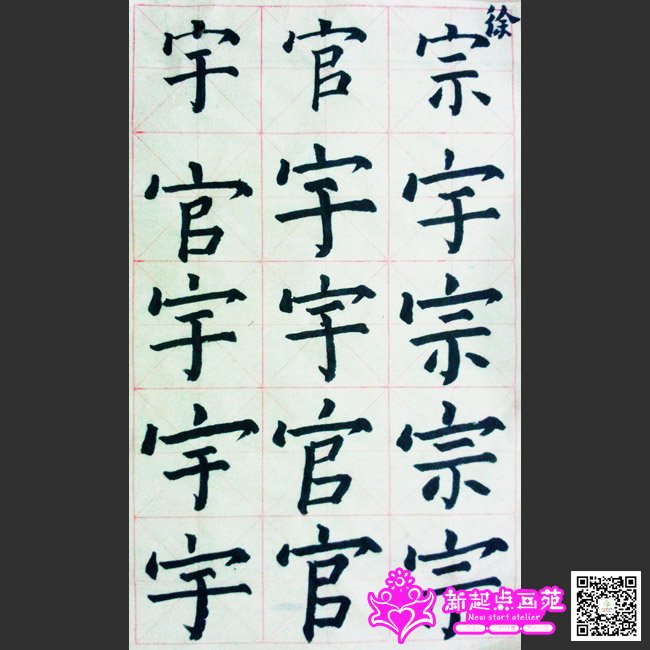 徐
宗宇宗宗
官宇宇官官
宇官宇宇宇
新起点画苑
New start atelier